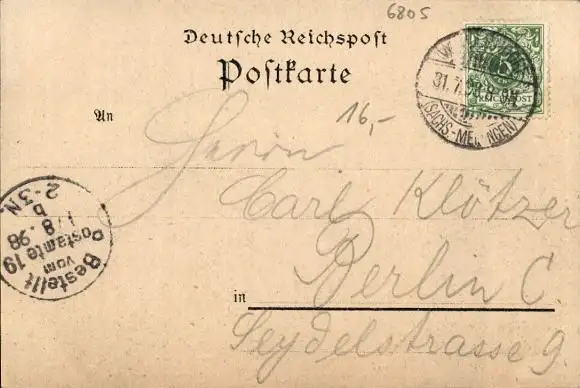 6805
Deutsche Reichspost
Postkarte
An
16,-
Herrn
Carl Klötzer
in Berlin C.
Seydelstrasse 9
REICHSPOST
31. 7. 98. 8-9N.
(SACHS-MEININGEN)
Bestellt
vom
Postamte 19
1/8. 98
2-3N.